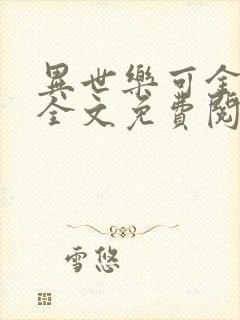 異世樂可全
全文免費閱
雪悠